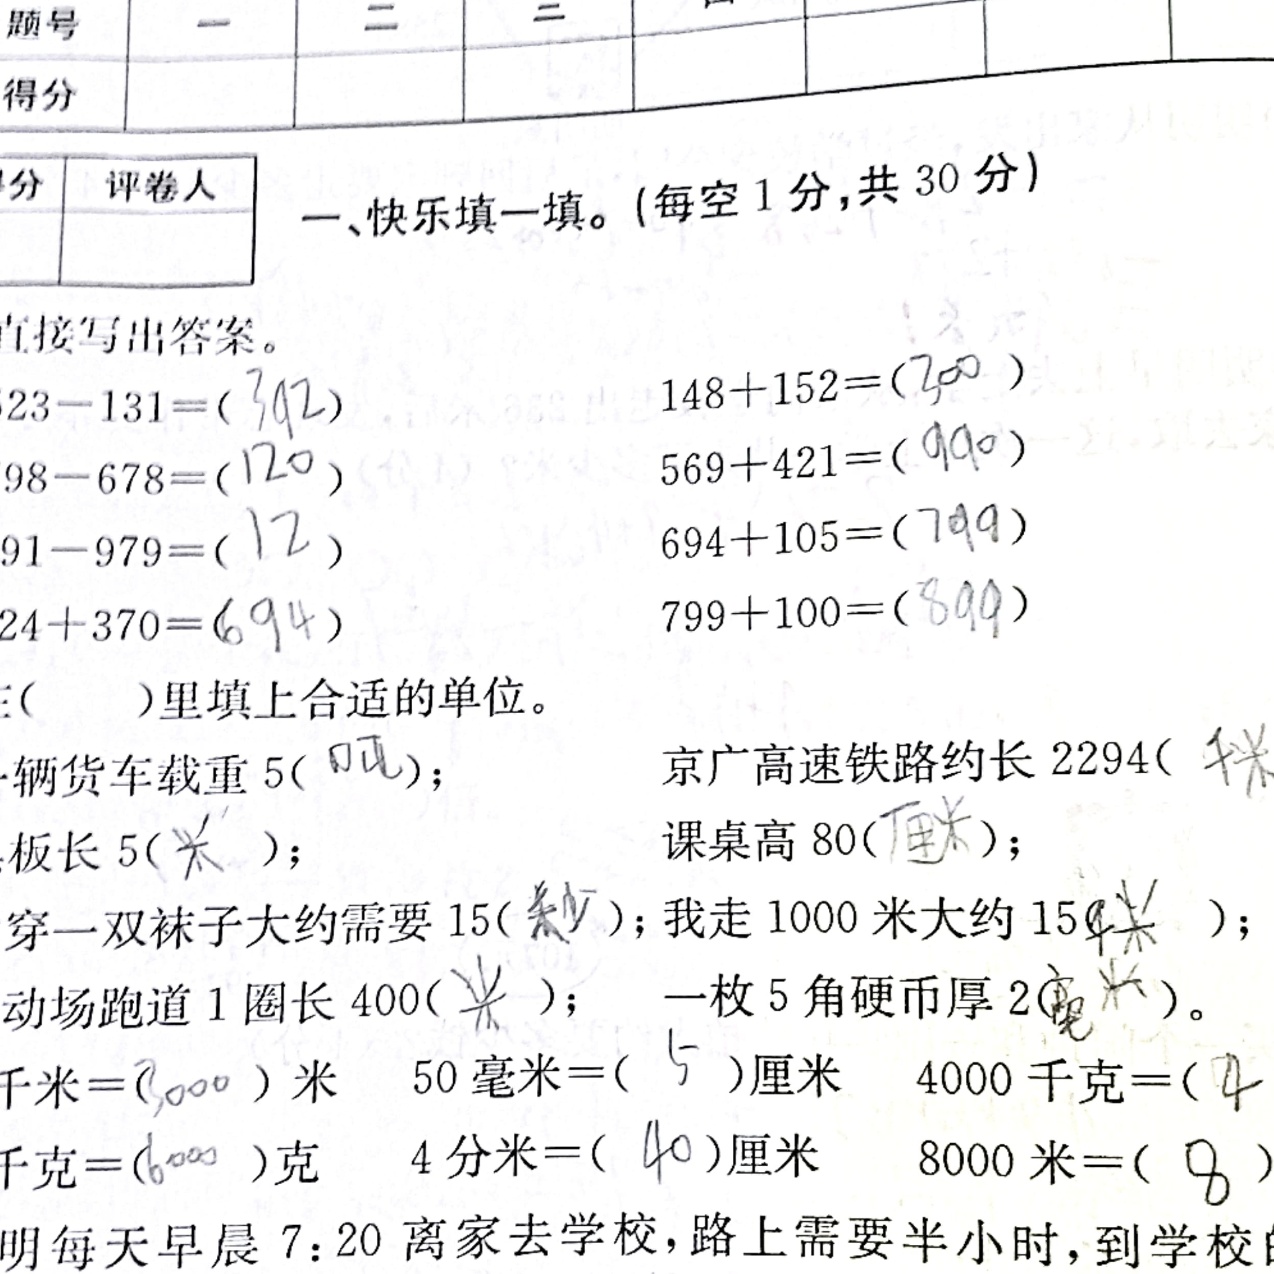 题号 一 二 三
得分
分 评卷人
一、快乐填一填。(每空1分,共30分)
直接写出答案。
523-131=(392) 148+152=(300)
98-678=(120) 569+421=(990)
91-979=(12) 694+105=(799)
24+370=(694) 799+100=(899)
( )里填上合适的单位。
辆货车载重5(吨); 京广高速铁路约长2294(千米
板长5(米); 课桌高80(厘米);
穿一双袜子大约需要15(秒); 我走1000米大约15(千米);
动场跑道1圈长400(米); 一枚5角硬币厚2(毫米)。
千米=(3000)米 50毫米=(5)厘米 4000千克=(4
千克=(6000)克 4分米=(40)厘米 8000米=(8)
明每天早晨7:20离家去学校,路上需要半小时,到学校